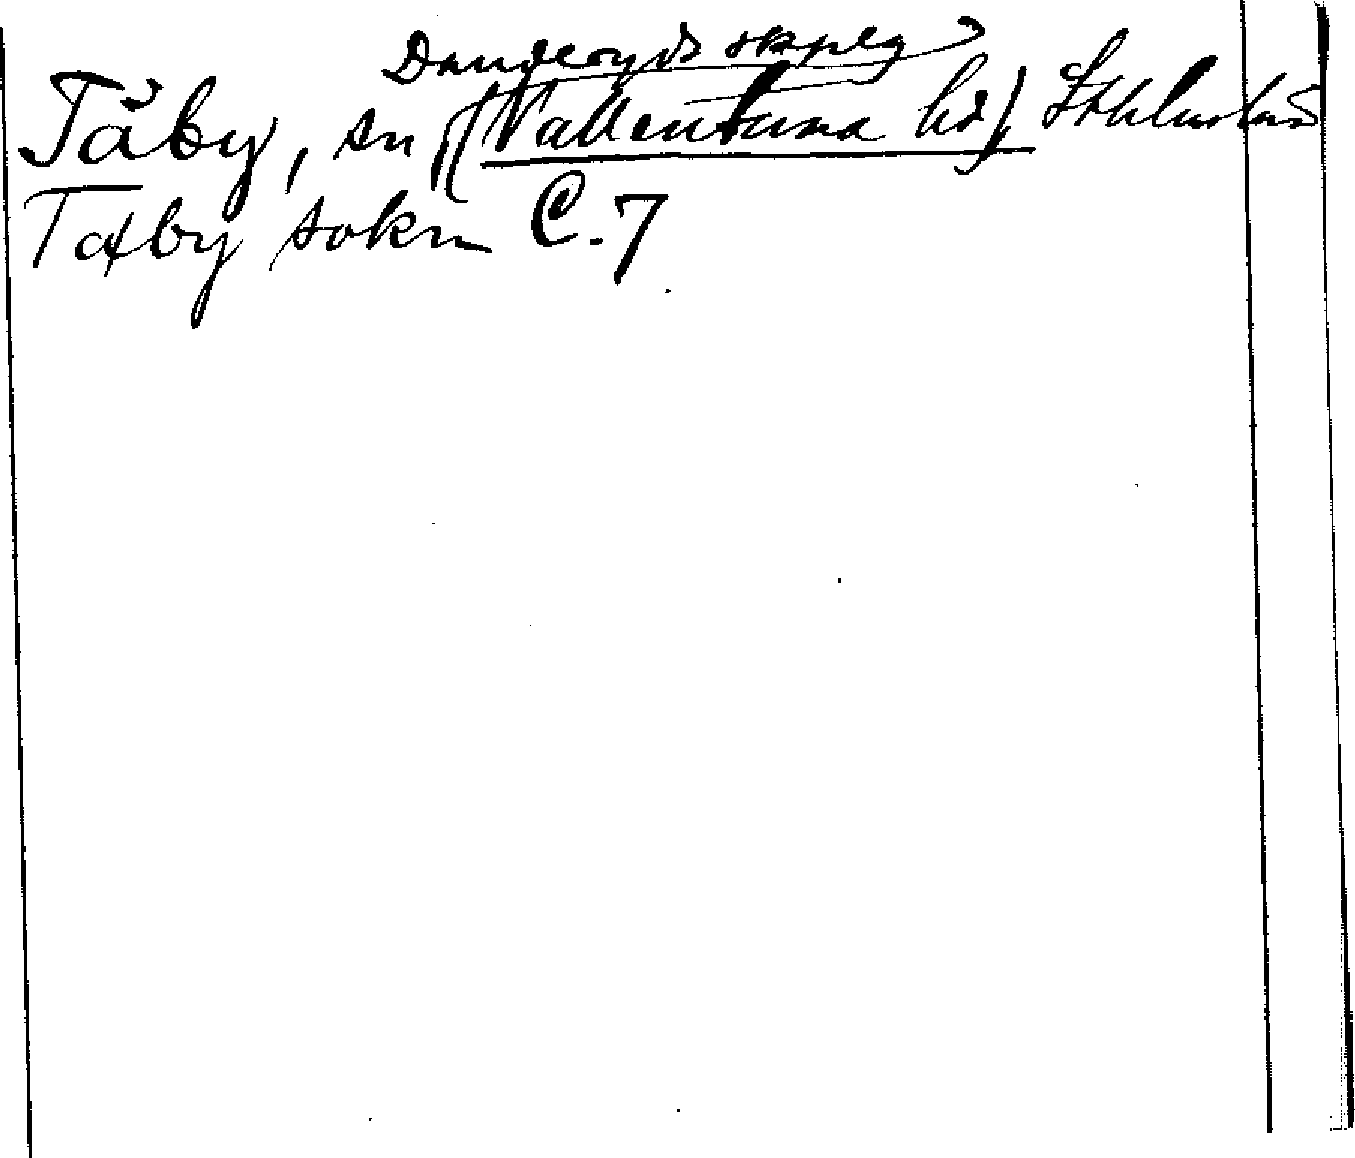 Danderyds skplg
Täby, sn (Vallentuna hd) Sthlms län
Tæby sokn C.7